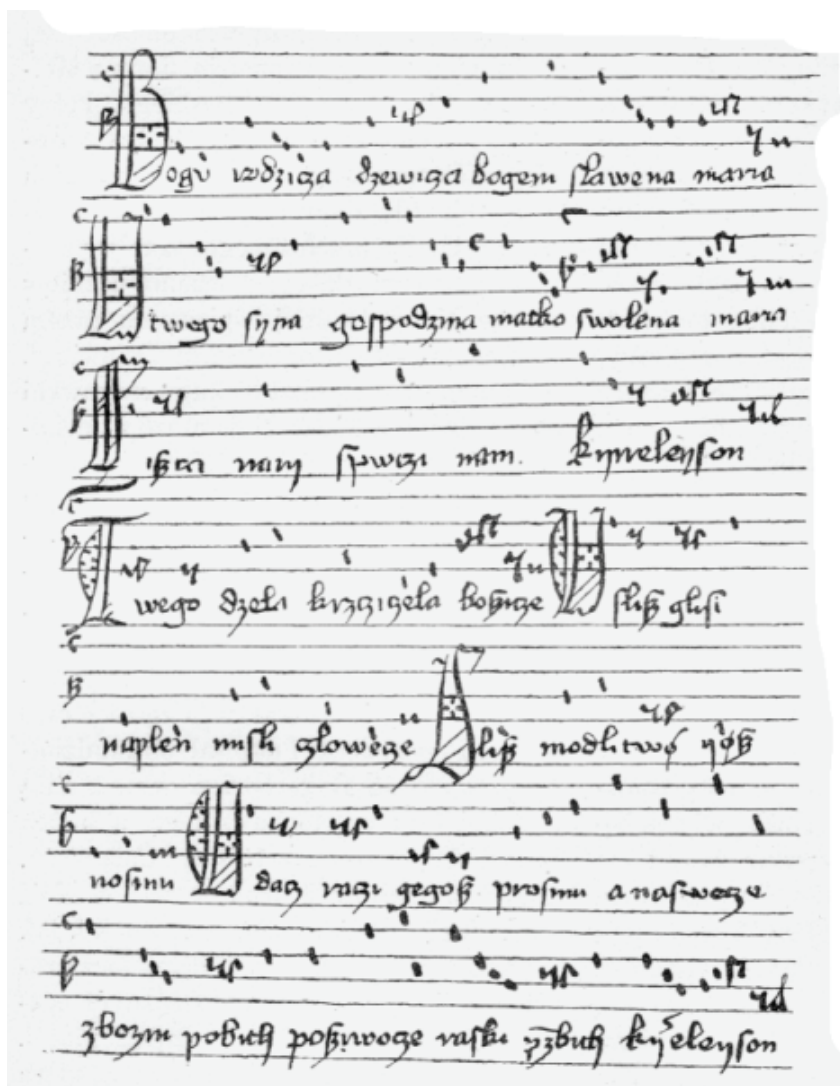 Bogv rodzicza dzewicza bogem slawena maria
U twego syna gospodzina matko swolena maria
nam spwczi nam Kyrieleyson
Twego dzela krzcziczela bozicze Uslisz glosi
naplen misli czlowecze Slisz modlitwø yøsz
nosimi dacz raczi gegosz prosimi a naswecze
zbozni pobith posziwocze raski kyrieleyson